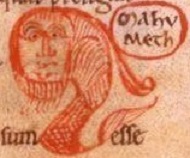 mahu
meth
sum esse